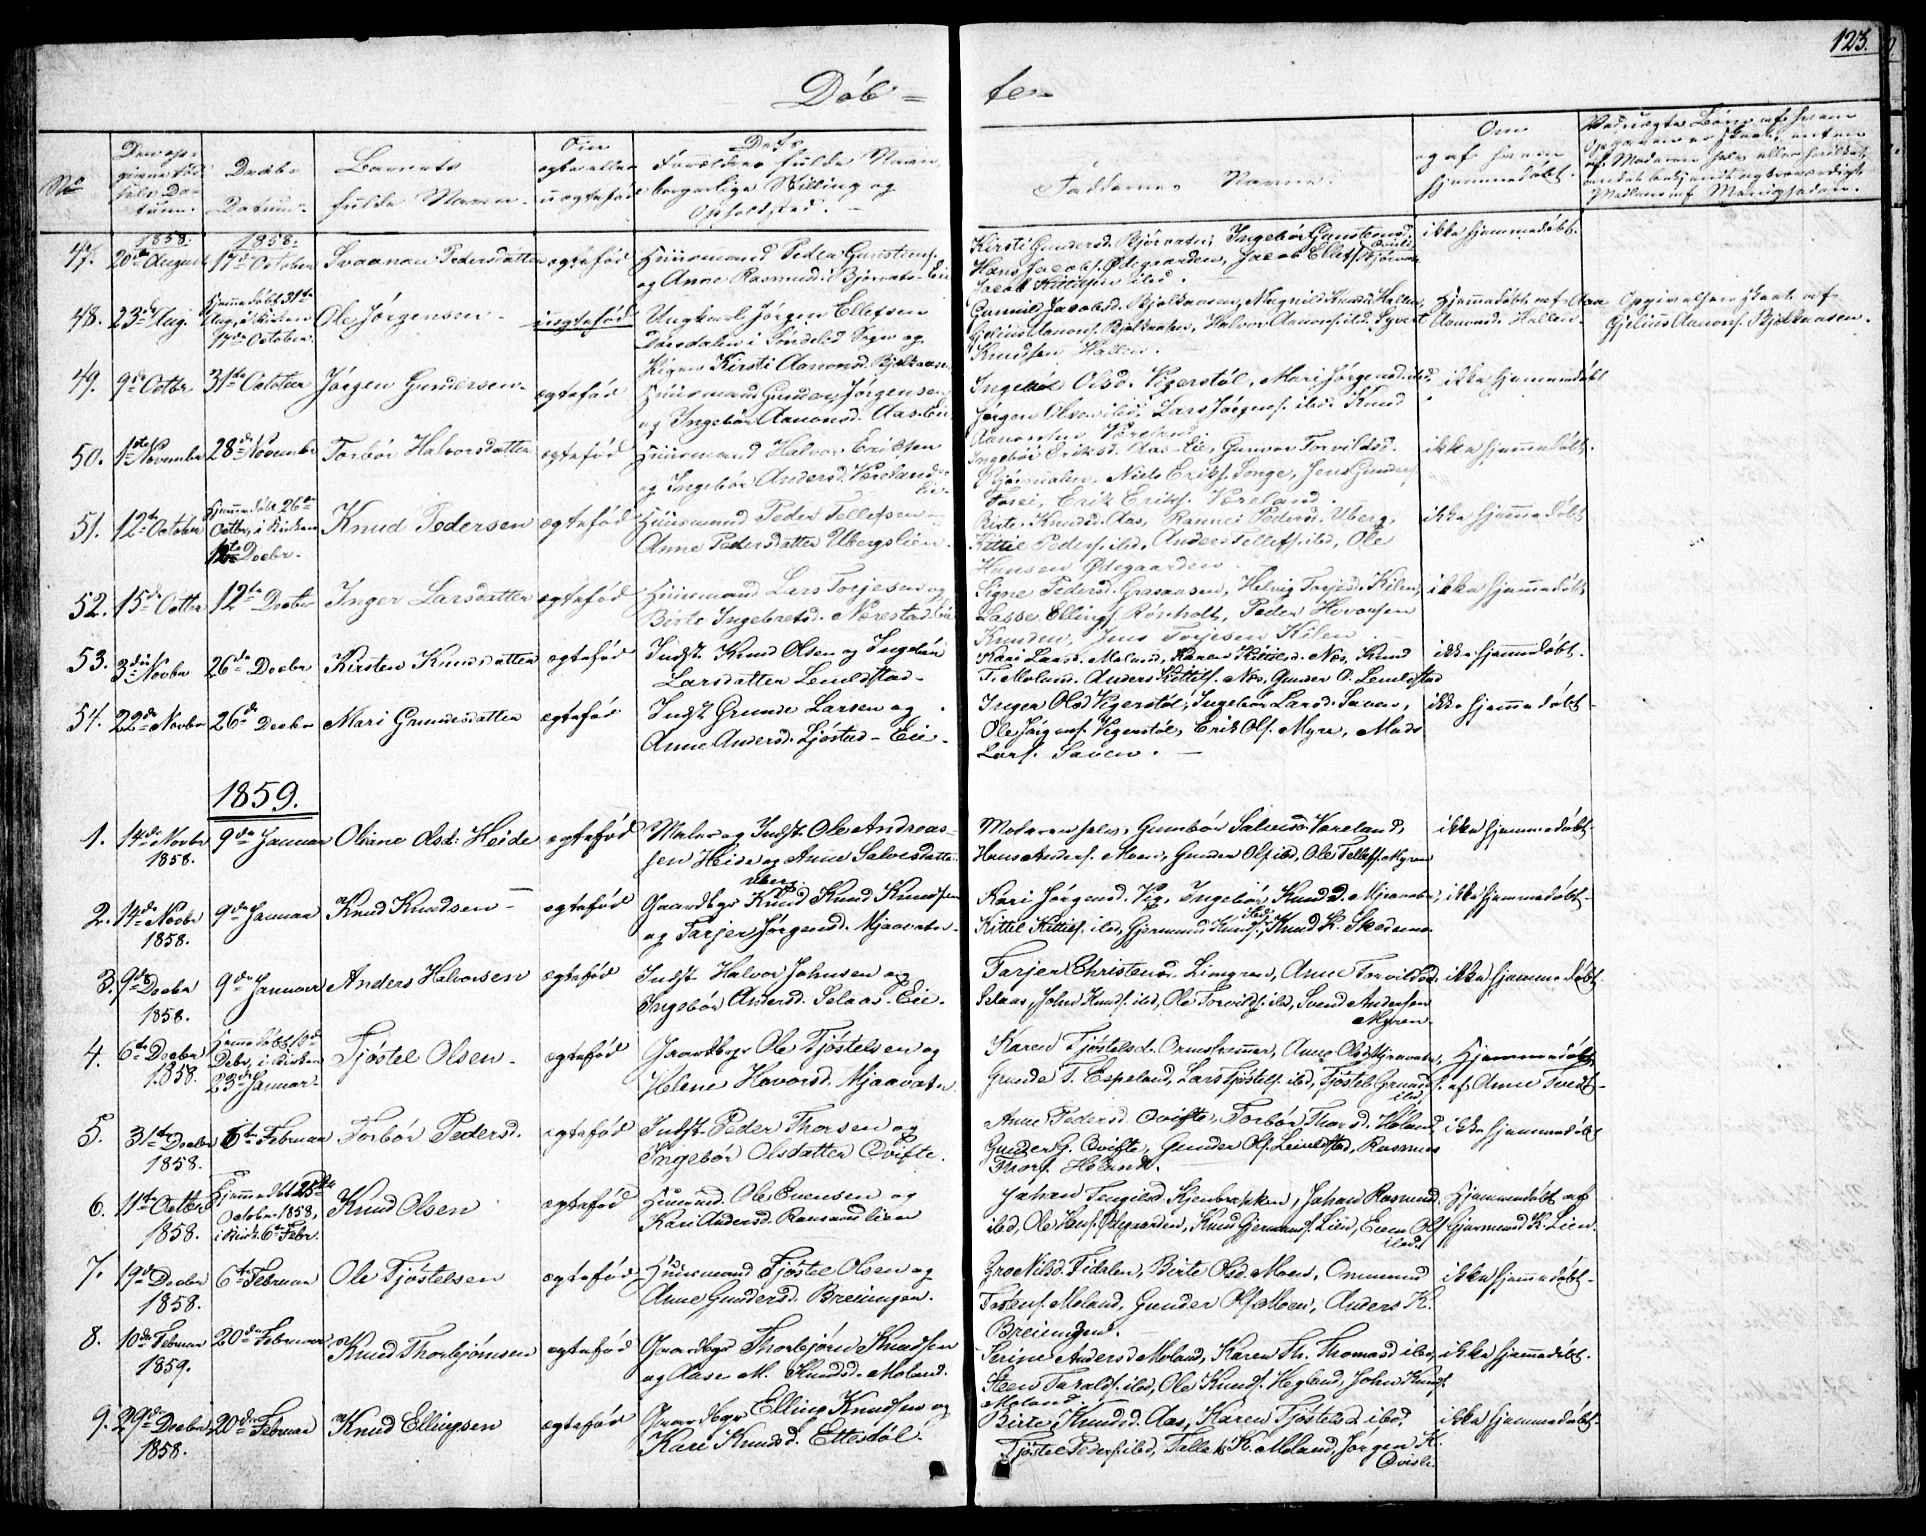 123.
Døb=
te-
No
Den op-
givne Fød-
sels Da-
tum.
Daabs
Datum.
Barnets
fulde Navn.
Om
ægte eller
uægtefød
Dets
Forældres fulde Navn,
borgerlige Stilling og
Opholdsted.
Faddernes Navne.
Om
og af hvem
hjemmedøbt.
47. 1858. 20de August 1858. 17de October Svaanau Pedersdatter ægtefød Huusmand Peder Gunstens.
og Anne Rasmusd. Bjørvatn-Eie
Kirsti Gundersd. Bjørvatn, Ingebør Gunstensd. Qvifte,
Hans Jacobs. Ødegaarden, Jacob Ellefs. Bjørvatn,
Jacob Kittilsen ibd.
ikke hjemmedøbt.
48. 23de Aug. Hjemmedøbt 31te
Aug., i Kirken
17de October. Ole Jørgensen uægtefød Ungkarl Jørgen Ellefsen
i Søndeled Sogn og
Pigen Kirsti Aanonsd. Bjelkaasen
Gunnild Jacobsd. Bjelkaasen, Magnild Knudsd. Hallen,
Gjelius Aanons. Bjelkaasen, Halvor Aanons. ibd. Syvert
Knudsen Hallen.
Hjemmedøbt af
Aanonsd. Hallen.
Opgivelsen skeet af
Gjelius Aanons. Bjelkaasen.
49. 9de Octbr 31te October Jørgen Gundersen. ægtefød Huusmand Gunder Jørgensen
og Ingebør Aanonsd. Aas-Eie
Ingebør Olsd. Vegerstøl, Mari Jørgensd. ibd.,
Jørgen Olsen ibd., Lars Jørgens. ibd. Knud
Aanonsen Væreland.
ikke hjemmedøbt
50. 1ste November 28de Novembr Torbør Halvorsdatter ægtefød Huusmand Halvor Eriksen
og Ingebør Andersd. Væreland-
Eie.
Ingebør Eriksd. Aas-Eie, Gunvor Torvildsd.
Niels Eriks. Songe, Jens Gunders.
Erik Eriks. Væreland.
ikke hjemmedøbt.
51. 12te October Hjemmedøbt 26te
Octbr, i Kirken
12te Decbr. Knud Pedersen ægtefød Huusmand Peder Tellefsen
Anne Pedersdatter Ubergslien.
Birte Knudsd. Aas, Rannei Pedersd. Uberg,
Kittil Peders. ibd, Anders Tellefs. ibd, Ole
Hansen Ødegaarden.
ikke hjemmedøbt
52. 15de Octbr 12te Decbr Inger Larsdatter ægtefød Huusmand Lars Torjesen og
Birte Ingebretsd. Nærestad-Eie
Signe Pedersd. Graaaasen, Helvig Torjesd. Kilen,
Lasse Ellings. Rørholt, Peder Hovorsen
Jens Torjesen Kilen.
ikke hjemmedøbt
53. 3die Novbr 26de Decbr Kirsten Knudsdatter ægtefød Indst. Knud Olsen og Ingebør
Larsdatter Lemelstad-
Kari Larsd. Moland, Karen Kittilsd. Næs, Knud
T. Moland. Anders Kittils. Næs, Gunder O. Lemelstad
ikke hjemmedøbt.
54. 22de Novbr 26de Decbr Mari Grundesdatter ægtefød Indst. Grunde Larsen og
Anne Andersd. Ljøstad-Eie-
Inger Olsd. Vegerstøl, Ingebør Larsd. Saven,
Ole Jørgens. Vegerstøl, Erik Ols. Myre, Mads
Lars. Saven.
ikke hjemmedøbt-
1859.
1. 14de Novbr
1858. 9de Januar Oliane Olsd. Heide ægtefød Maler og Indst. Ole Andreas-
sen Heide og Anne Salvesdatter
Moderen selv, Gunbør Salvesd. Væreland,
Hans Anders. Moen, Gunder Ols. ibd, Ole Tellefs. Myren
ikke hjemmedøbt
2. 14de Novbr
1858. 9de Januar Knud Knudsen ægtefød Gaardbgr Knud Knudsen Uberg
og Tarjer Jørgensd. Mjaavatn-
Kari Jørgensd. Vig, Ingebør Knudsd. Mjaavatn,
Kittel Kittels. ibd, Gjermund Knuds. ibd., Knud K. Skedsmo
ikke hjemmedøbt-
3. 9de Decbr
1858. 9de Januar Anders Halvorsen ægtefød Indst. Halvor Johnsen og
Ingebør Andersd. Selaas-Eie.
Tarjer Christensd. Limgren, Anne Torvildsd.
Selaas, John Knuds. ibd, Ole Torvilds. ibd, Svend Andersen
Myren.
ikke hjemmedøbt
4. 6te Decbr
1858. Hjemmedøbt 10de
Decbr, i Kirken
23de Januar. Tjøstel Olsen- ægtefød Gaardbgr Ole Tjøstelsen og
Helene Havorsd. Mjaavatn.
Karen Tjøstelsd. Anne Olsd. Mjaavatn,
Grunde T. Espeland, Lars Tjøstels. ibd, Tjøstel Grunds.
ibd,
Hjemmedøbt
af Anne Tveit-
5. 31te Decbr
1858. 6te Februar Torbør Pedersd. ægtefød Indst. Peder Thorsen og
Ingebør Olsdatter Qvifte.
Anne Pedersd. Qvifte, Torbør Thorsd. Høland,
Gunder G. Qvifte, Gunder Ols. Lemelstad, Rasmus
Thors. Høland.
ikke hjemmedøbt
6. 11te Octbr
1858. Hjemmedøbt 25de
October 1858,
i Kirk. 6te Febr. Knud Olsen ægtefød Huusmd. Ole Evensen og
Kari Andersd. Ramsmslien
Johan Tengelsd. Kjenbrækken, Johan Rasmusd.
ibd, Ole Hans. Ødegaarden, Knud Gjermunds. Lien, Even Ols.
ibd.
Hjemmedøbt af
Gjermund K. Lien.
7. 19de Decbr
1858. 6te Februar Ole Tjøstelsen ægtefød Huusmand Tjøstel Olsen og
Anne Gundersd. Breiungen.
Gro Nilsd. Fidalen, Birte Olsd. Moen, Ommund
Tostens. Moland, Gunder Ols. Moen, Anders K.
Breiungen.
ikke hjemmedøbt-
8. 10de Februar
1859. 20de Februar Knud Thorbjørnsen ægtefød Gaardbgr Thorbjørn Knudsen
og Aase M. Knudsd. Moland.
Serine Andersd. Moland, Karen Th. Thomasd ibd,
Steen Taralds. ibd, Ole Knuds. Hegland, John Knuds.
Moland.
ikke hjemmedøbt.
9. 29de Decbr
1858. 20de Februar Knud Ellingsen ægtefød Gaardbgr Elling Knudsen og
Kari Knudsd. Ettedøl.
Birte Knudsd. Aas, Karen Tjøstelsd. ibd,
Tjøstel Peders. ibd, Tellef K. Moland, Jørgen K.
Qvisli.
ikke hjemmedøbt-